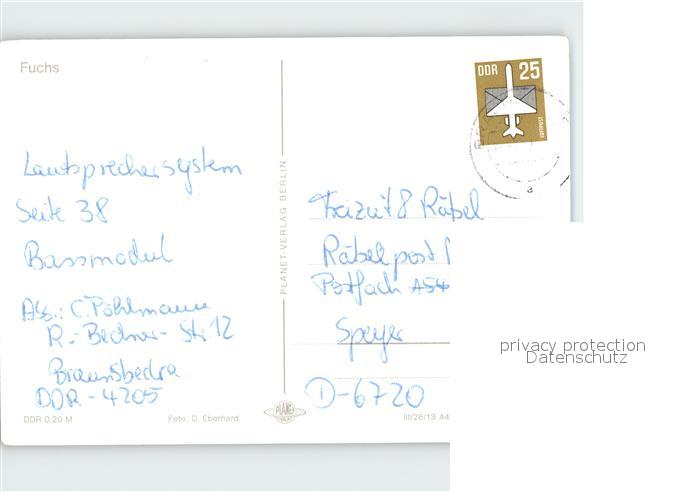 Fuchs
DDR 25
LUFTPOST
Lautsprechersystem
Seite 38
Bassmodul
Abs.: C. Pöhlmann
R.-Bechner-Str 12
Braunsbedra
DDR-4205
DDR 0,20 M
Foto: D. Eberhard
PLANET-VERLAG BERLIN
PLANET
VERLAG
III/26/13 A4
Freizeit & Rätsel
Rätselpost
Postfach
Speyer
D-6720
privacy protection
Datenschutz